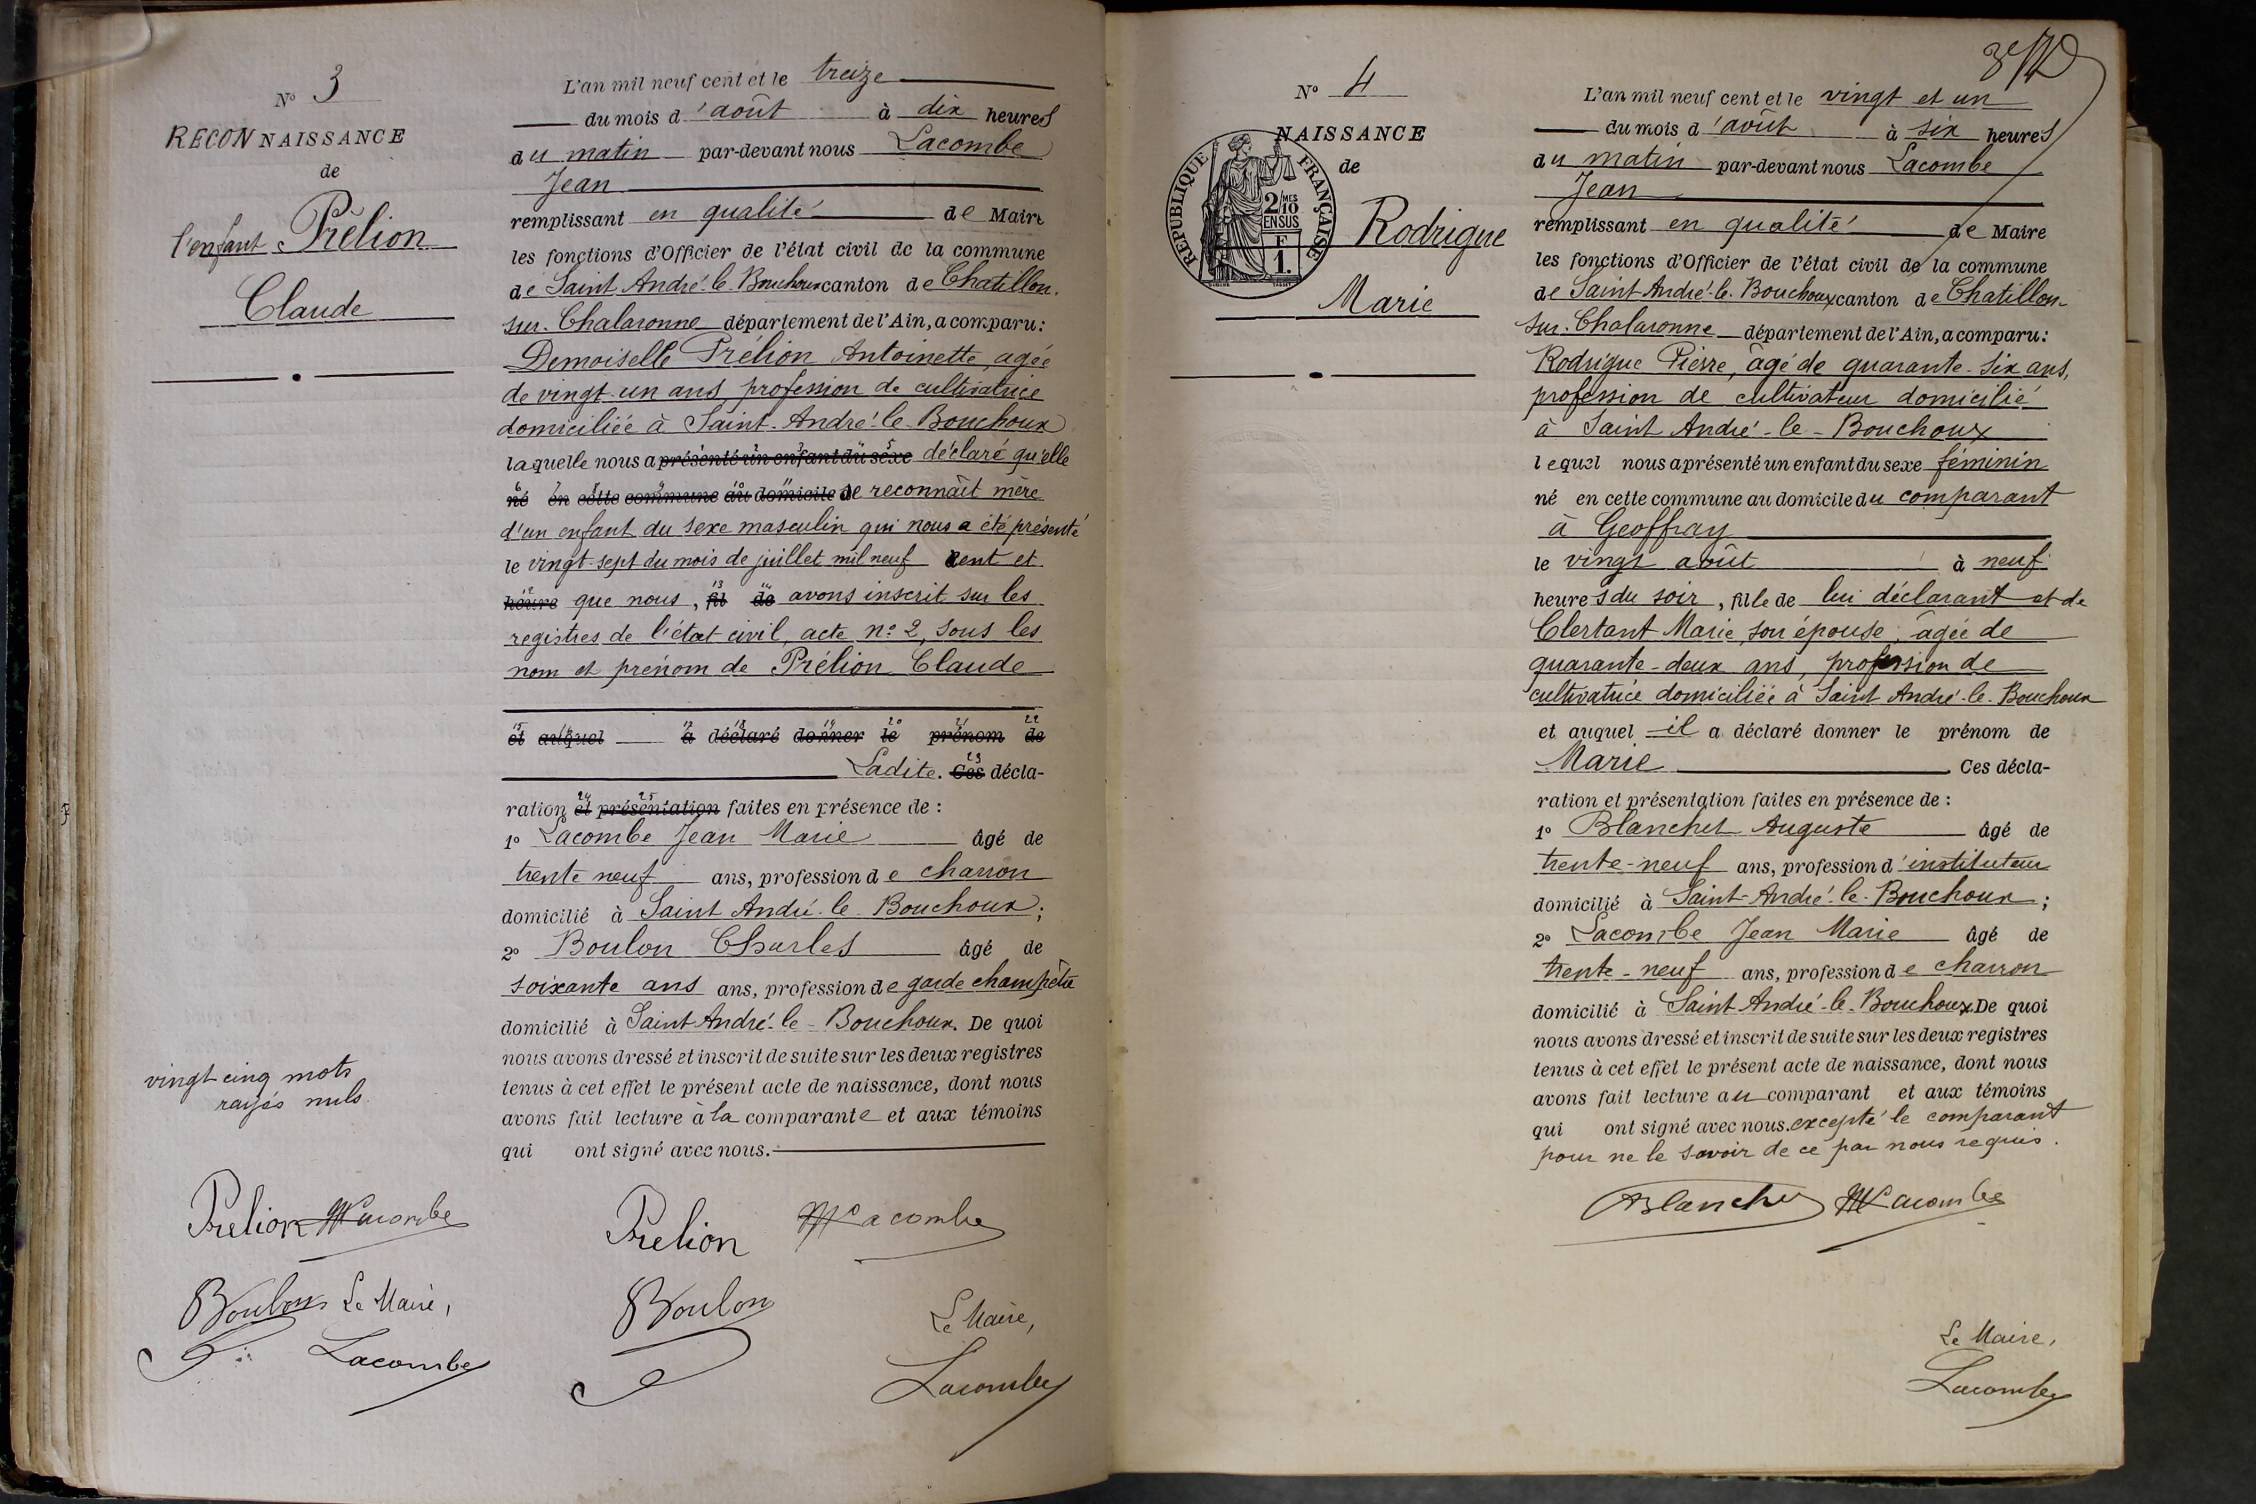 N° 3
RECONNAISSANCE
de
l'enfant Prélion
Claude
L'an mil neuf cent et le treize
du mois d'août à dix heures
du matin par-devant nous Lacombe
Jean
remplissant en qualité de Maire
les fonctions d'Officier de l'état civil de la commune
de Saint André-le-Bouchoux canton de Chatillon-
sur-Chalaronne département de l'Ain, a comparu :
Demoiselle Prélion Antoinette, agée
de vingt-un ans, profession de cultivatrice
domiciliée à Saint-André-le-Bouchoux
laquelle nous a présenté un enfant du sexe déclaré qu'elle
né en cette commune au domicile de reconnaît mère
d'un enfant du sexe masculin qui nous a été présenté
le vingt-sept du mois de juillet mil neuf cent et
heure que nous, fil de avons inscrit sur les
registres de l'état civil, acte n° 2, sous les
nom et prénom de Prélion Claude
et auquel a déclaré donner le prénom de
Ladite. Ces décla-
ration et présentation faites en présence de :
1° Lacombe Jean Marie âgé de
trente neuf ans, profession de charron
domicilié à Saint André-le-Bouchoux ;
2° Boulon Charles âgé de
soixante ans ans, profession de garde champêtre
domicilié à Saint André-le-Bouchoux. De quoi
nous avons dressé et inscrit de suite sur les deux registres
tenus à cet effet le présent acte de naissance, dont nous
avons fait lecture à la comparante et aux témoins
qui ont signé avec nous.
vingt cinq mots
rayés nuls.
Prelion Lacombe
Boulon Le Maire,
Lacombe
Prelion Lacombe
Boulon Le Maire,
Lacombe
N° 4
NAISSANCE
de
Rodrigue
Marie
REPUBLIQUE FRANÇAISE
2/10 MES
EN SUS
F
1.
L'an mil neuf cent et le vingt et un
du mois d'août à six heures
du matin par-devant nous Lacombe
Jean
remplissant en qualité de Maire
les fonctions d'Officier de l'état civil de la commune
de Saint André-le-Bouchoux canton de Chatillon-
sur-Chalaronne département de l'Ain, a comparu :
Rodrigue Pierre, âgé de quarante-six ans,
profession de cultivateur domicilié
à Saint André-le-Bouchoux
lequel nous a présenté un enfant du sexe féminin
né en cette commune au domicile du comparant
à Geoffray
le vingt août à neuf
heures du soir, fille de lui déclarant et de
Clertant Marie, son épouse, âgée de
quarante-deux ans, profession de
cultivatrice domiciliée à Saint André-le-Bouchoux
et auquel il a déclaré donner le prénom de
Marie Ces décla-
ration et présentation faites en présence de :
1° Blanchet Auguste âgé de
trente-neuf ans, profession d'instituteur
domicilié à Saint-André-le-Bouchoux ;
2° Lacombe Jean Marie âgé de
trente-neuf ans, profession de charron
domicilié à Saint André-le-Bouchoux De quoi
nous avons dressé et inscrit de suite sur les deux registres
tenus à cet effet le présent acte de naissance, dont nous
avons fait lecture au comparant et aux témoins
qui ont signé avec nous. excepté le comparant
pour ne le savoir de ce par nous requis.
Blanchet Lacombe
Le Maire,
Lacombe